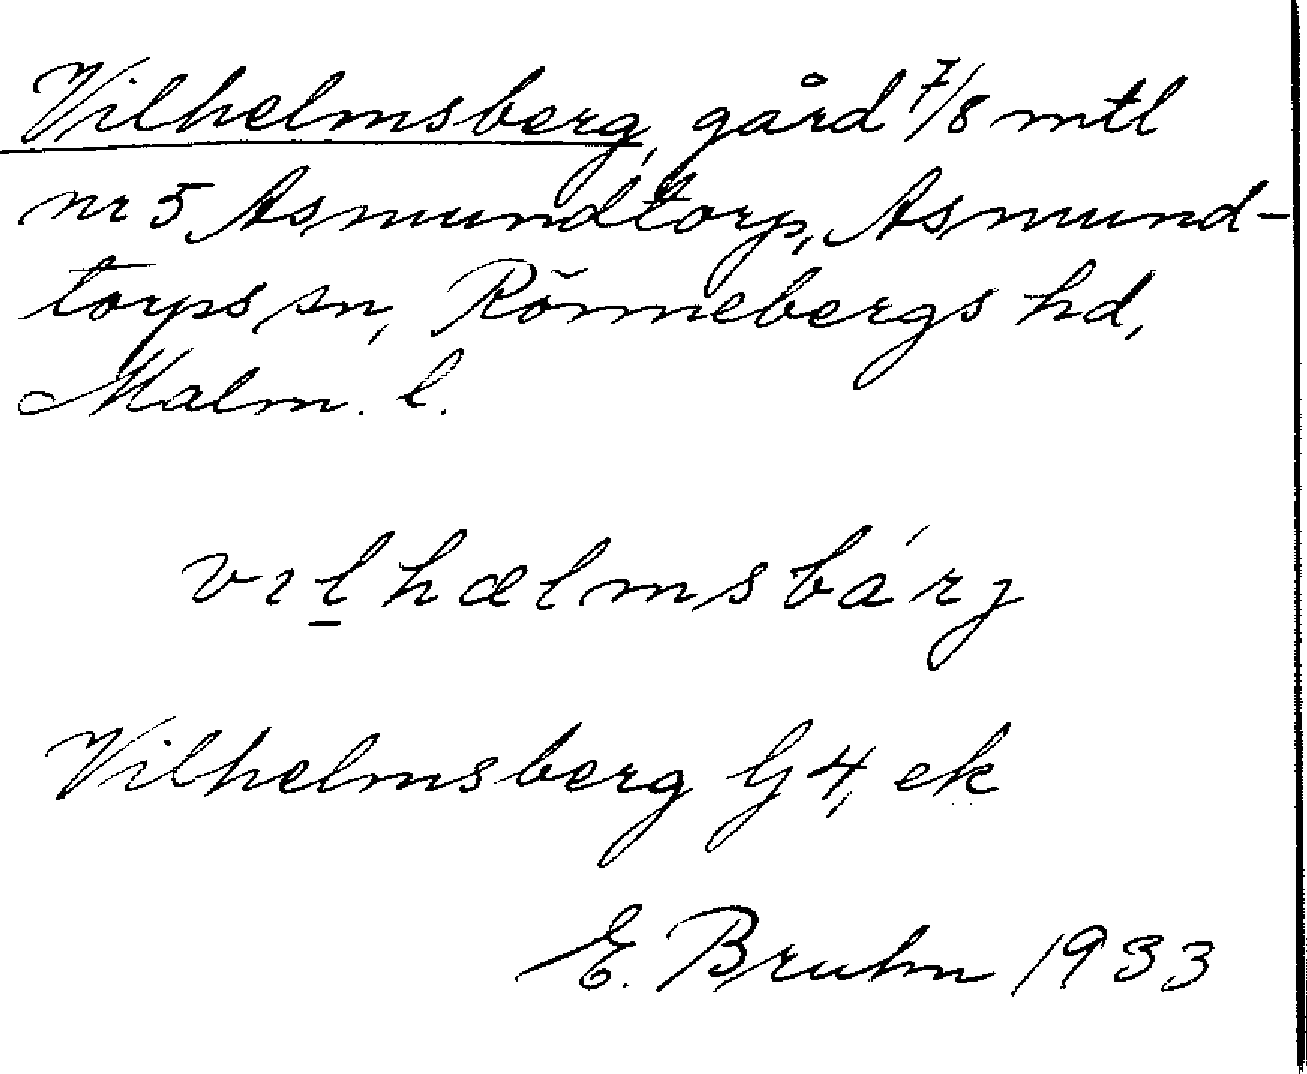 Vilhelmsberg, gård 7/8 mtl
nr 5 Asmundtorp, Asmund-
torps sn, Rönnebergs hd,
Malm. l.
vılhælmsbárj
Vilhelmsberg G4, ek
E. Bruhn 1933